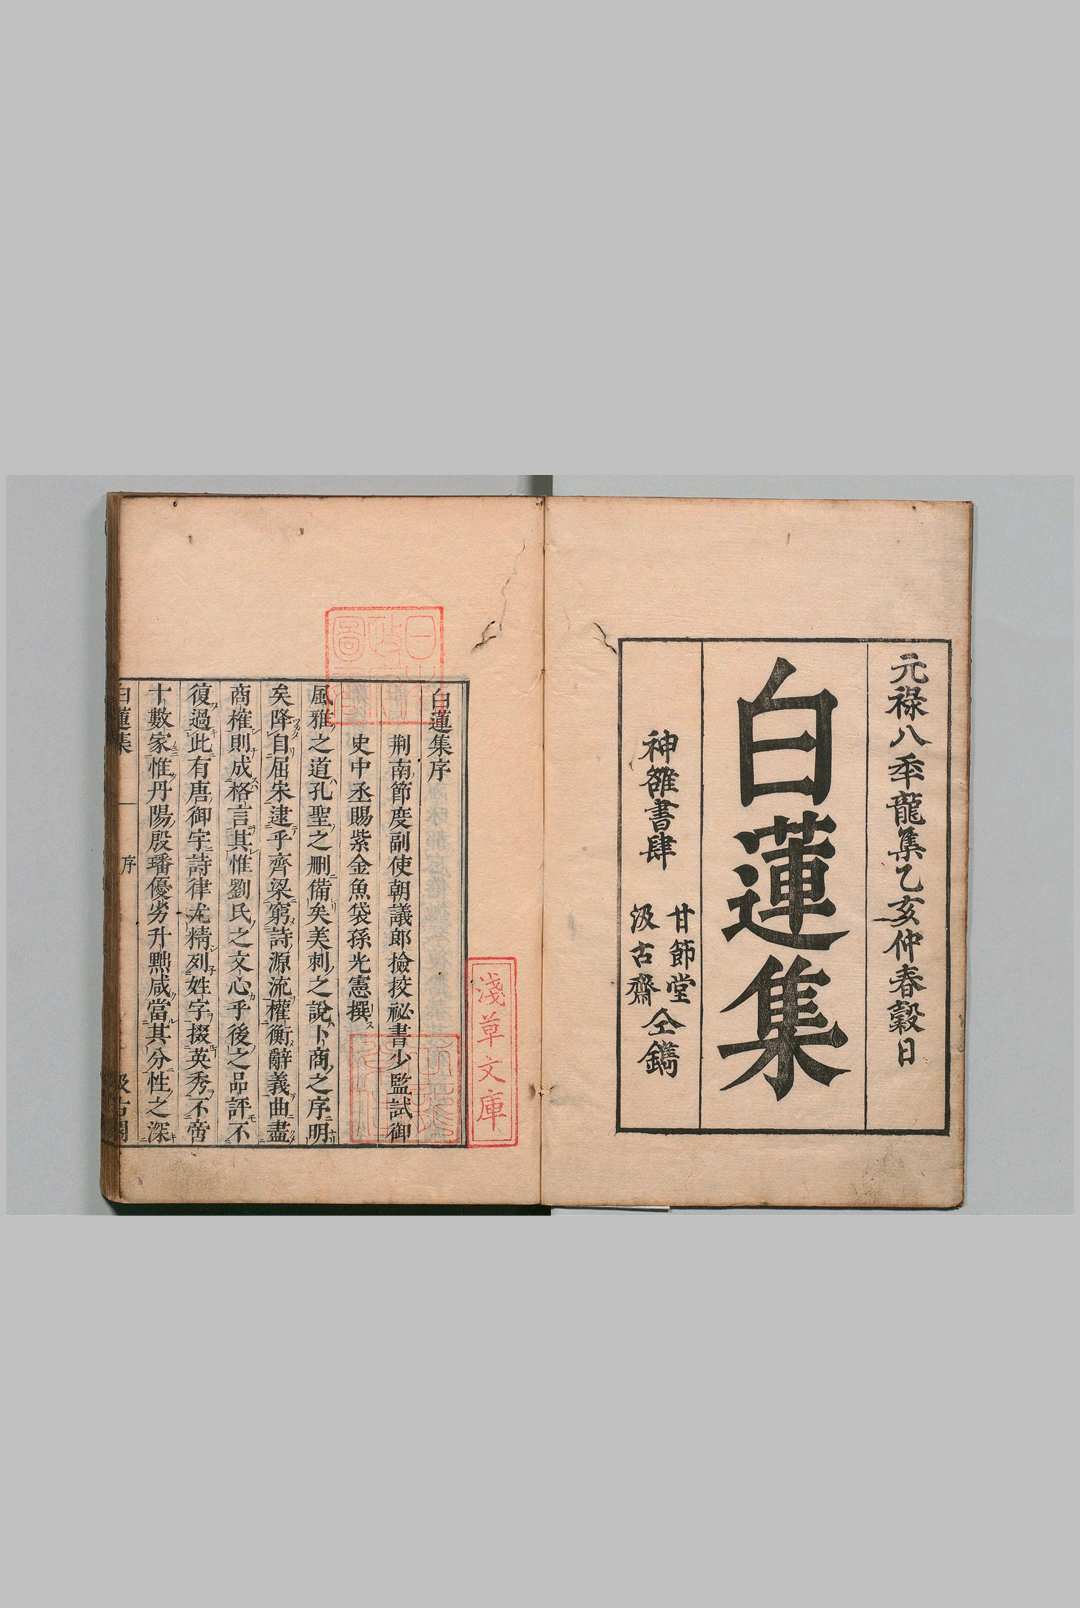 元禄八年龍集乙亥仲春穀日
白蓮集
神雒書肆
甘節堂
汲古齋
仝鐫
淺草文庫
白蓮集序
荆南節度副使朝議郎撿挍祕書少監試御
史中丞賜紫金魚袋孫光憲撰
風雅之道孔聖之删備矣美刺之說卜商之序明
矣降自屈宋逮乎齊梁窮詩源流權衡辭義曲盡
商榷則成格言其惟劉氏之文心乎後之品評不
復過此有唐御宇詩律尤精列姓字掇英秀不啻
十數家惟丹陽殷璠優劣升黜咸當其分性之深
白蓮集 序 汲古閣